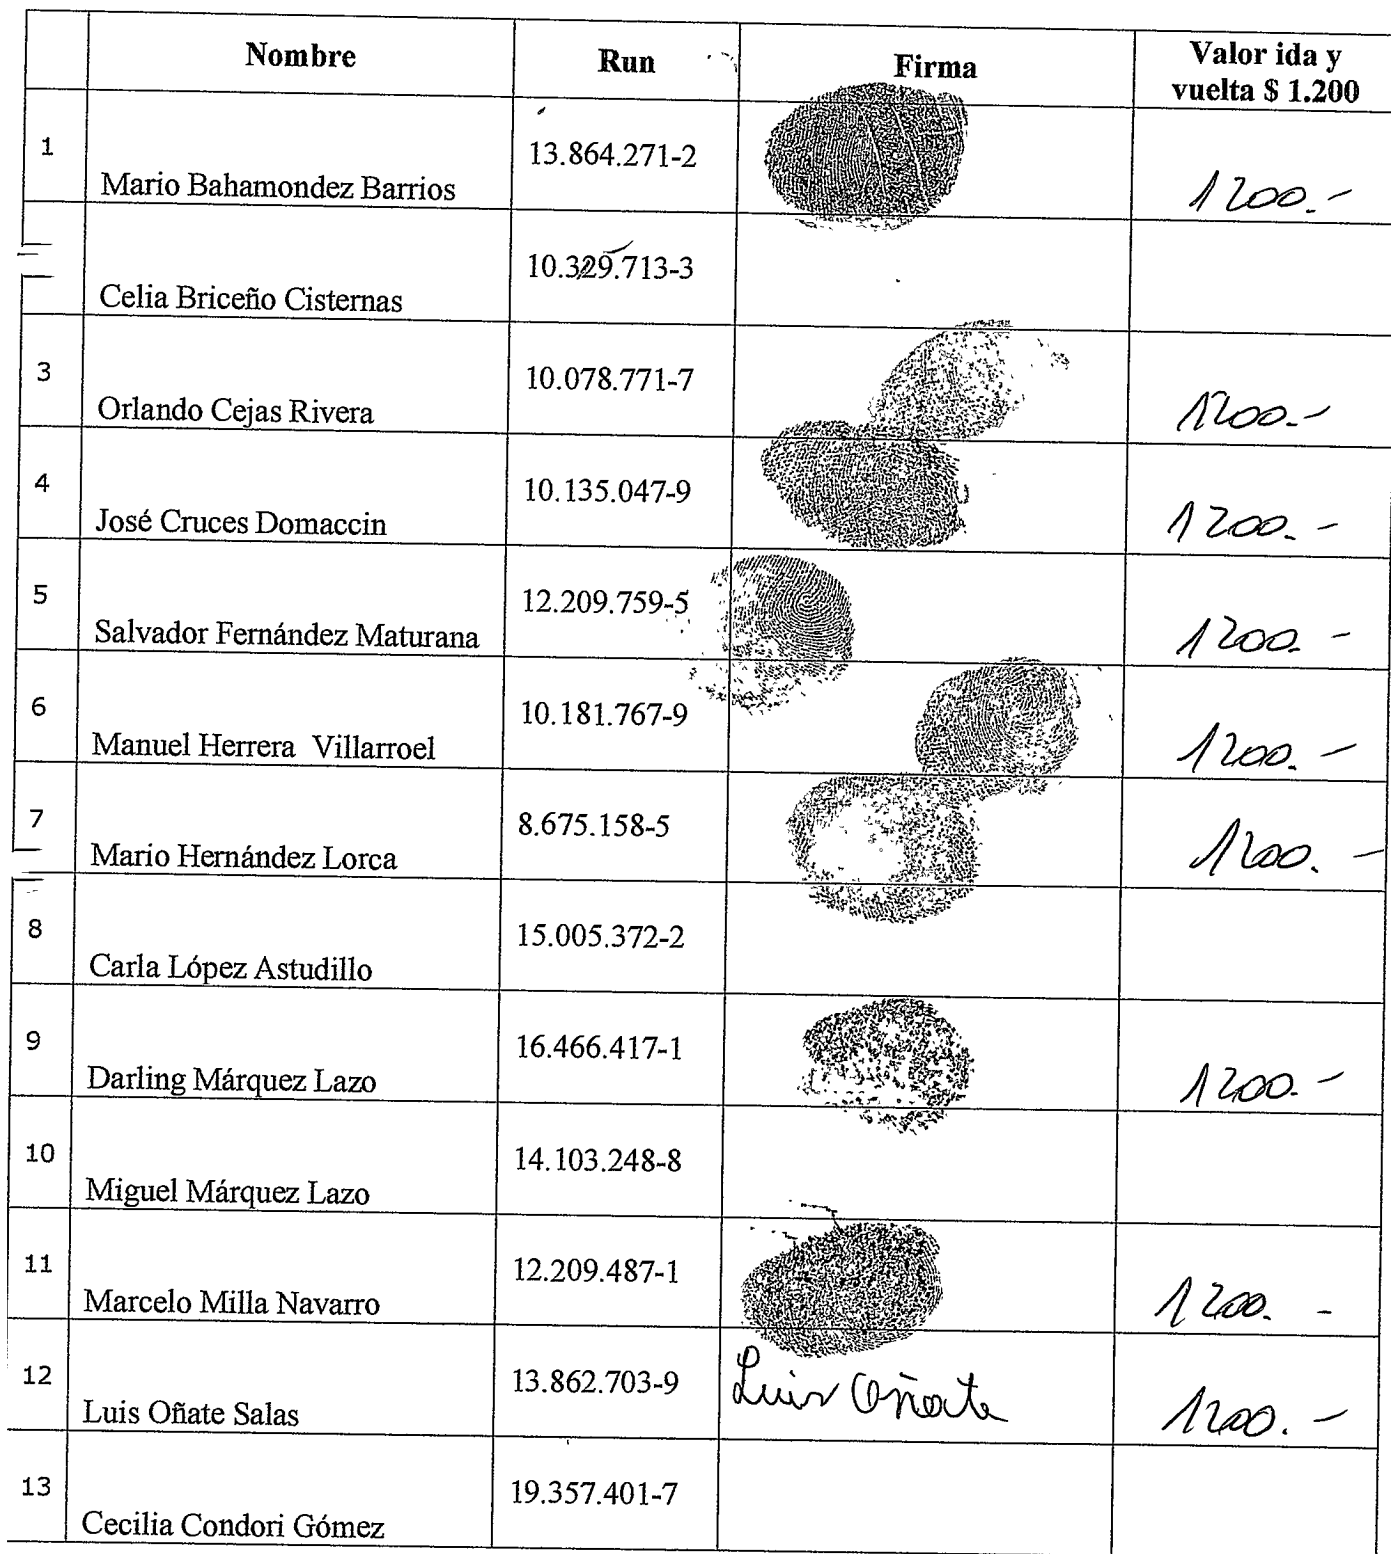 Nombre Run Firma Valor ida y
vuelta $ 1.200
1 Mario Bahamondez Barrios 13.864.271-2 1200.-
Celia Briceño Cisternas 10.329.713-3
3 Orlando Cejas Rivera 10.078.771-7 1200.-
4 José Cruces Domaccin 10.135.047-9 1200.-
5 Salvador Fernández Maturana 12.209.759-5 1200.-
6 Manuel Herrera Villarroel 10.181.767-9 1200.-
7 Mario Hernández Lorca 8.675.158-5 1200.-
8 Carla López Astudillo 15.005.372-2
9 Darling Márquez Lazo 16.466.417-1 1200.-
10 Miguel Márquez Lazo 14.103.248-8
11 Marcelo Milla Navarro 12.209.487-1 1200.-
12 Luis Oñate Salas 13.862.703-9 Luis Oñate 1200.-
13 Cecilia Condori Gómez 19.357.401-7